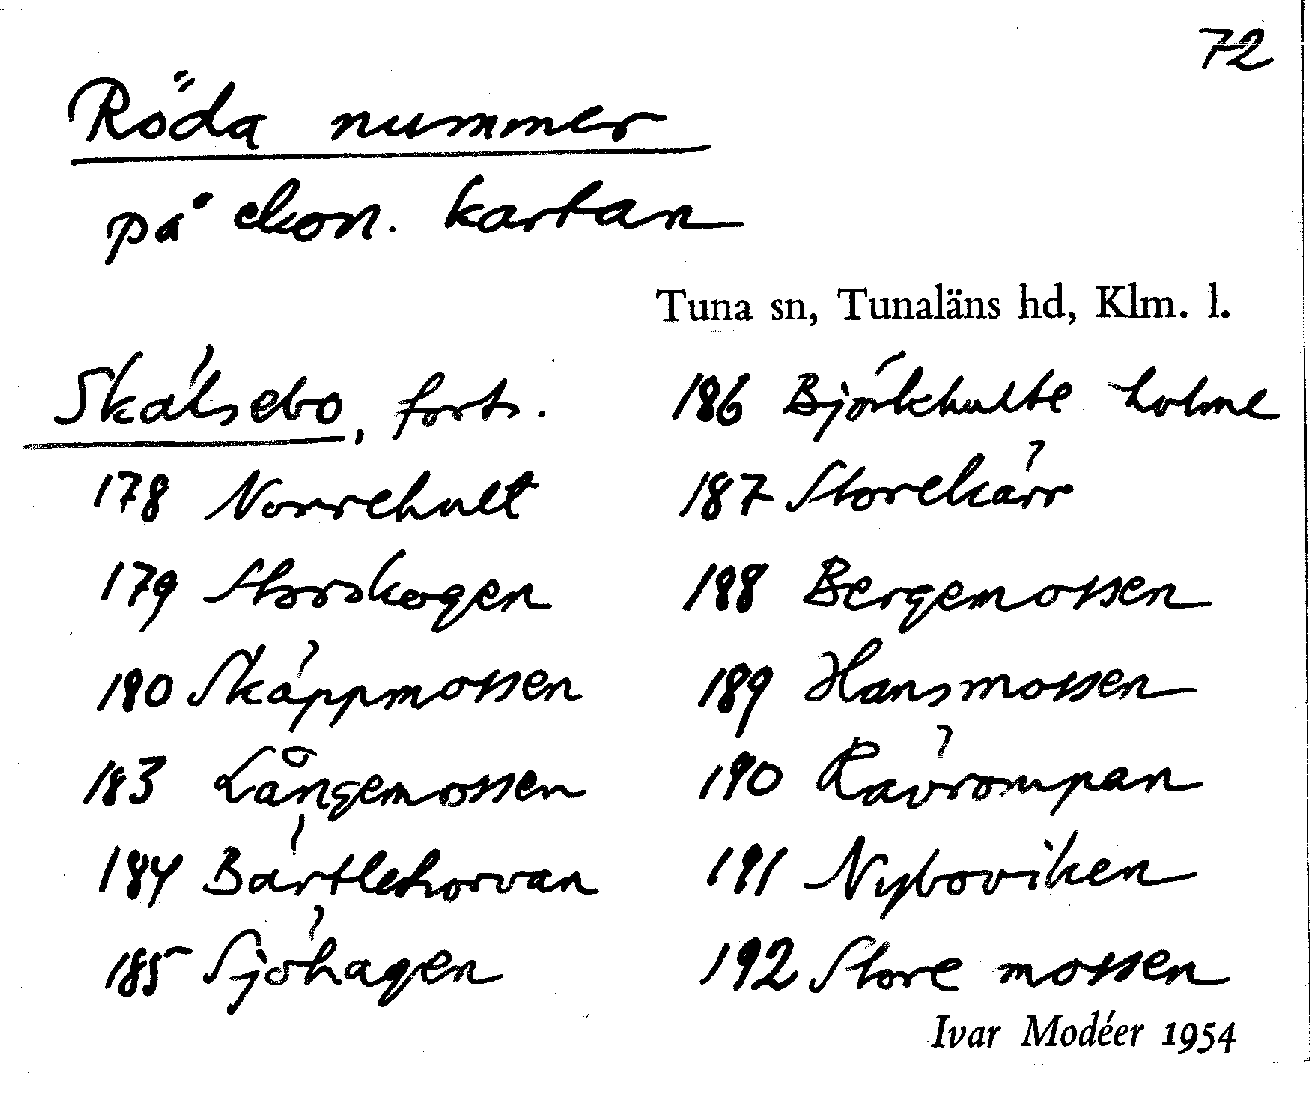 72
Röda nummer
på ekon. kartan
Tuna sn, Tunaläns hd, Klm. l.
Skälsebo, forts.
178 Norrehult
179 Storskogen
180 Skäppmossen
183 Långemossen
184 Bärtleshorvan
185 Sjöhagen
186 Björkhulte holme
187 Storekärr
188 Bergemossen
189 Hansmossen
190 Rävrompan
191 Nyboviken
192 Store mossen
Ivar Modéer 1954